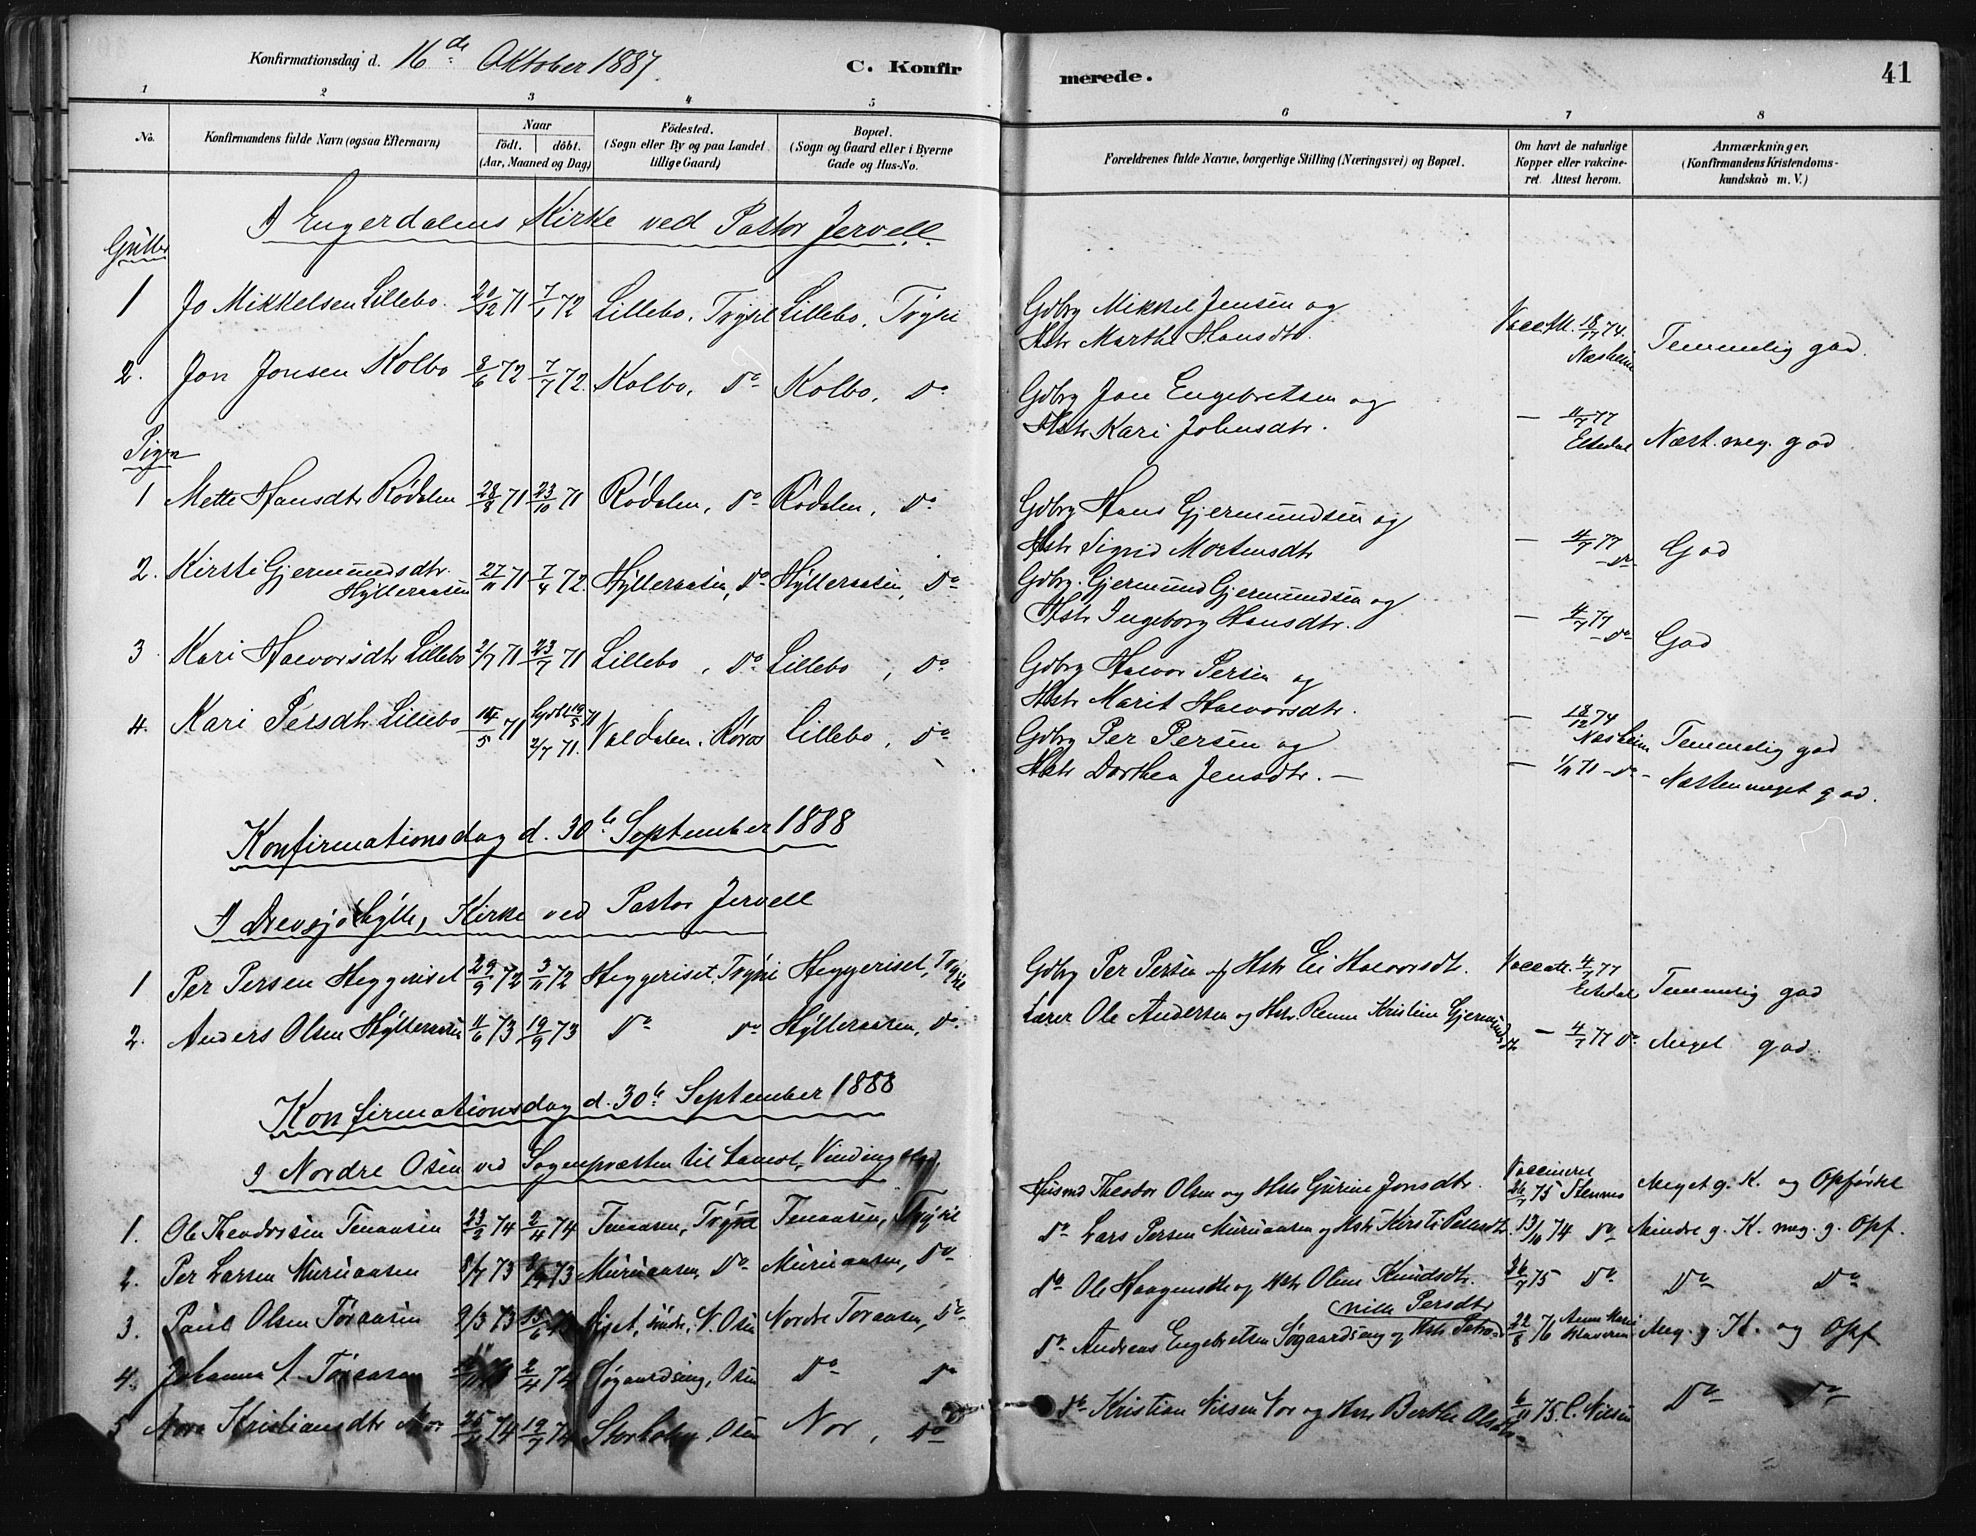 Konfirmationsdag d. 16de Oktober 1887.
C. Konfirmerede.
41
1 2 3 4 5 6 7 8
No.
Konfirmandens fulde Navn (ogsaa Efternavn)
Naar
födt. döbt.
(Aar, Maaned og Dag)
Födested.
(Sogn eller By og paa Landet tillige Gaard)
Bopæl.
(Sogn og Gaard eller i Byerne Gade og Hus-No.
Forældrenes fulde Navne, borgerlige Stilling (Næringsvei) og Bopæl.
Om havt de naturlige Kopper eller vakcineret. Attest herom.
Anmærkninger.
(Konfirmandens Kristendomskundskab m. V.)
I Engerdalens Kirke ved Pastor Jervell.
Gutter
1 Jo Mikkelsen Lillebo. 20/12 71 7/1 72 Lillebo, Trysil Lillebo, Trysil Gdbrg Mikkel Jensen og Hstr Marthe Hansdtr. Vacc. Att. 18/12 74. Næsheim Temmelig god.
2. Jon Jonsen Kolbo 2/6 72 7/7 72. Kolbo, Do Kolbo, Do Gdbrg Jon Engebretsen og Hstr Kari Johnsdtr. — 4/7 77 Elsedal Næst. meg. god
Piger
1 Mette Hansdtr Rödalen 28/8 71 23/10 71 Rödalen, Do Rödalen, Do Gdbrg Hans Gjermundsen og Hstr Sigrid Mortensdtr — 4/7 77 -Do- God
2. Kirsti Gjermundsdtr. Hylleraasen 27/11 71 7/4 72. Hylleraasen, Do Hylleraasen, Do Gdbrg. Gjermund Gjermundsen og Hstr Ingeborg Hansdtr. — 4/7 77 -Do God
3 Kari Halvorsdtr Lillebo 2/7 71 23/7 71 Lillebo, Do Lillebo, Do Gdbrg Halvor Persen og Hstr Marit Halvorsdtr. — 18/12 74 Næsheim Temmelig god
4. Kari Persdtr Lillebo 14/5 71 2/7 71. Valdalen, Röros Lillebo, Do Gdbrg Per Persen og Hstr Dorthea Jensdtr. — — 1/11 71 -Do- Næsten meget god.
Konfirmationsdag d. 30te September 1888
I Drevsjöhytte, Kirke ved Pastor Jervell
1 Per Persen Heggeriset 29/9 72 3/11 72 Heggeriset, Trysil Heggeriset, Trysil Gdbrg Per Persen og Hstr Eli Halvorsdtr. Vacc att. 4/7 77 Elsedal Temmelig god
2. Anders Olsen Hylleraasen 11/6 73 19/9 73 Do Do Hylleraasen, Do Lærer Ole Andersen og Hstr. Kristine Gjermundsdtr — 4/7 77 Do Meget god.
Konfirmationsdag d. 30te September 1888
I Nordre Osen ved Sognepræsten til Aamot, Vindingstad,
1. Ole Theodorsen Tenaasen 23/2 74 2/4 74 Tenaasen, Trysil Tenaasen, Trysil Husmd Theodor Olsen og Hstr Gurine Jonsdtr. Vaccineret 26/7 75 Steners Meget g. K. og Opförsel
2. Per Larsen Muruaasen 8/7 73 73 Muruaasen, Do Muruaasen, Do Do Lars Persen Muruaasen og Hstr Kirsti Pedersdtr. 13/10 74 Do Mindre g. K. meg. g. Opf.
3. Paul Olsen Töraasen 9/3 73 15/6 73 N. Osen Nordre Toraasen, Do Do Ole Haagensen og Hstr Oline Knudsdtr. 26/7 75 Do Do Do
4. Johanne A. Töraasen 2/4 74 Sögaardseng, Osen Do Do Do Andreas Engebretsen Søgaardseng og Hstr Petronille Persdtr 22/8 76 Anne Marie Meg. g. K. og Opf
5 Nora Kristiansdtr Nor 25/4 74 19/7 74 Storholen, Osen Nor, Do Do Kristian Nilsen Nor og Hstr Berthe Olsdtr. 6/11 75. C. Nilsen Do Do